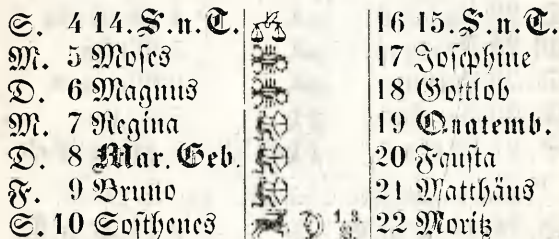 S. 4 14. S. n. T. 16 15. S. n. T.
M. 5 Moses 17 Josephine
D. 6 Magnus 18 Gottlob
M. 7 Regina 19 Quatemb.
D. 8 Mar. Geb. 20 Fausta
F. 9 Bruno 21 Matthäus
S. 10 Sosthenes 22 Moritz